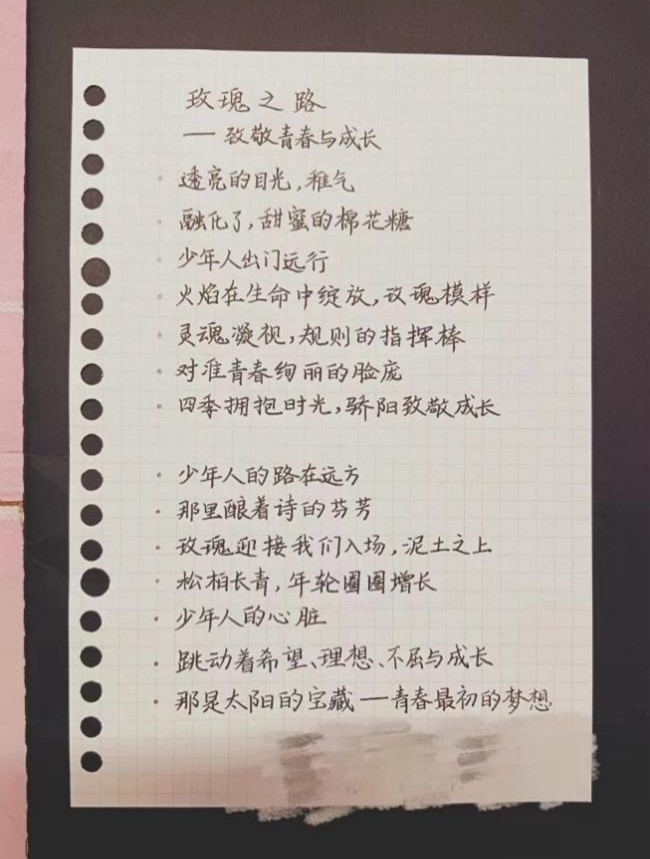 玫瑰之路
——致敬青春与成长
· 透亮的目光，稚气
· 融化了，甜蜜的棉花糖
· 少年人出门远行
· 火焰在生命中绽放，玫瑰模样
· 灵魂凝视，规则的指挥棒
· 对准青春绚丽的脸庞
· 四季拥抱时光，骄阳致敬成长
· 少年人的路在远方
· 那里酿着诗的芬芳
· 玫瑰迎接我们入场，泥土之上
· 松柏长青，年轮圈圈增长
· 少年人的心脏
· 跳动着希望、理想、不屈与成长
· 那是太阳的宝藏——青春最初的梦想